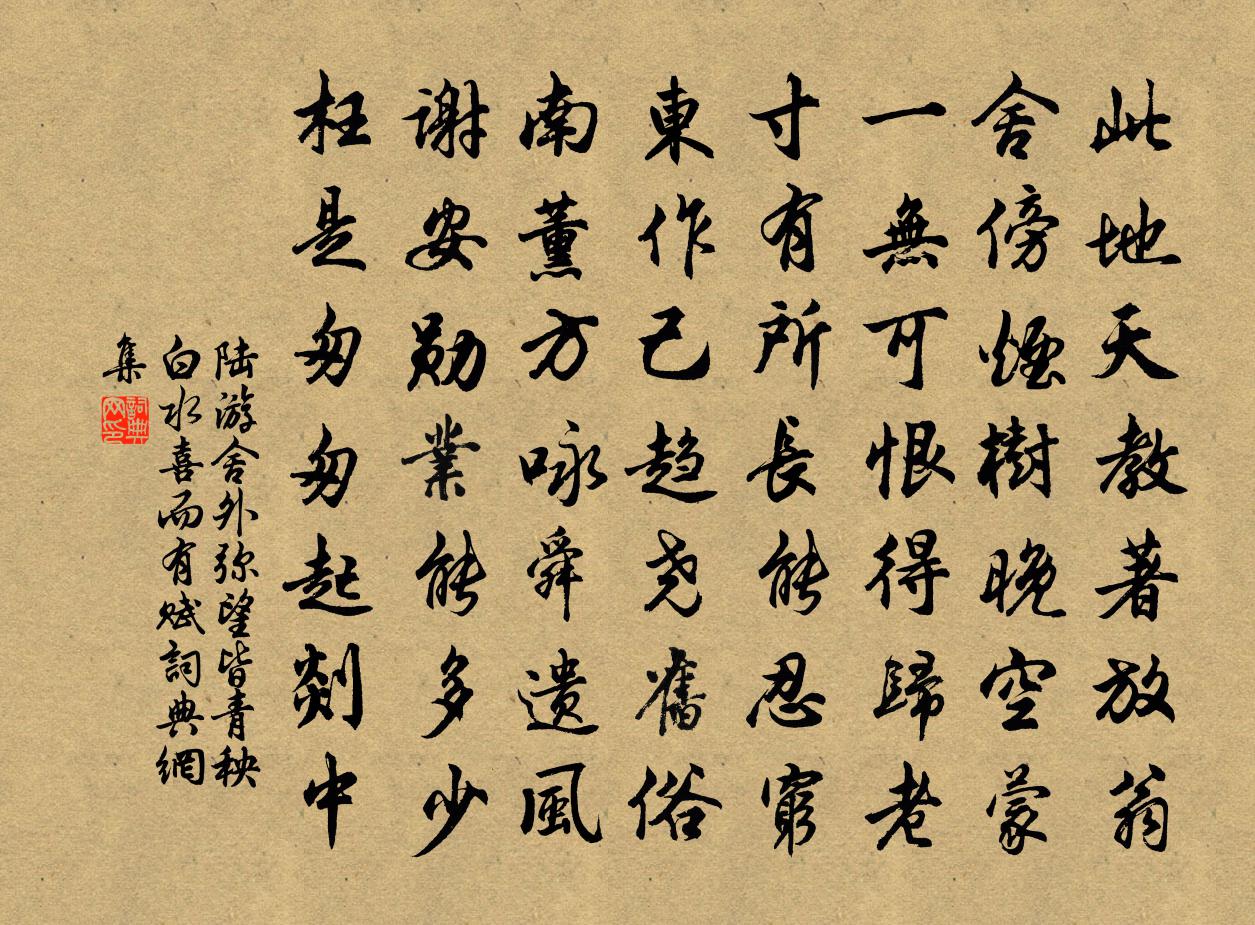 此地天教著放翁
舍傍煙樹晚空蒙
一無可恨得歸老
寸有所長能忍窮
東作已趋尧舊俗
南薰方咏舜遗風
謝安勋業能多少
枉是匆匆起剡中
陆游舍外弥望皆青秧
白水喜而有赋詞典網
集
詞典网印